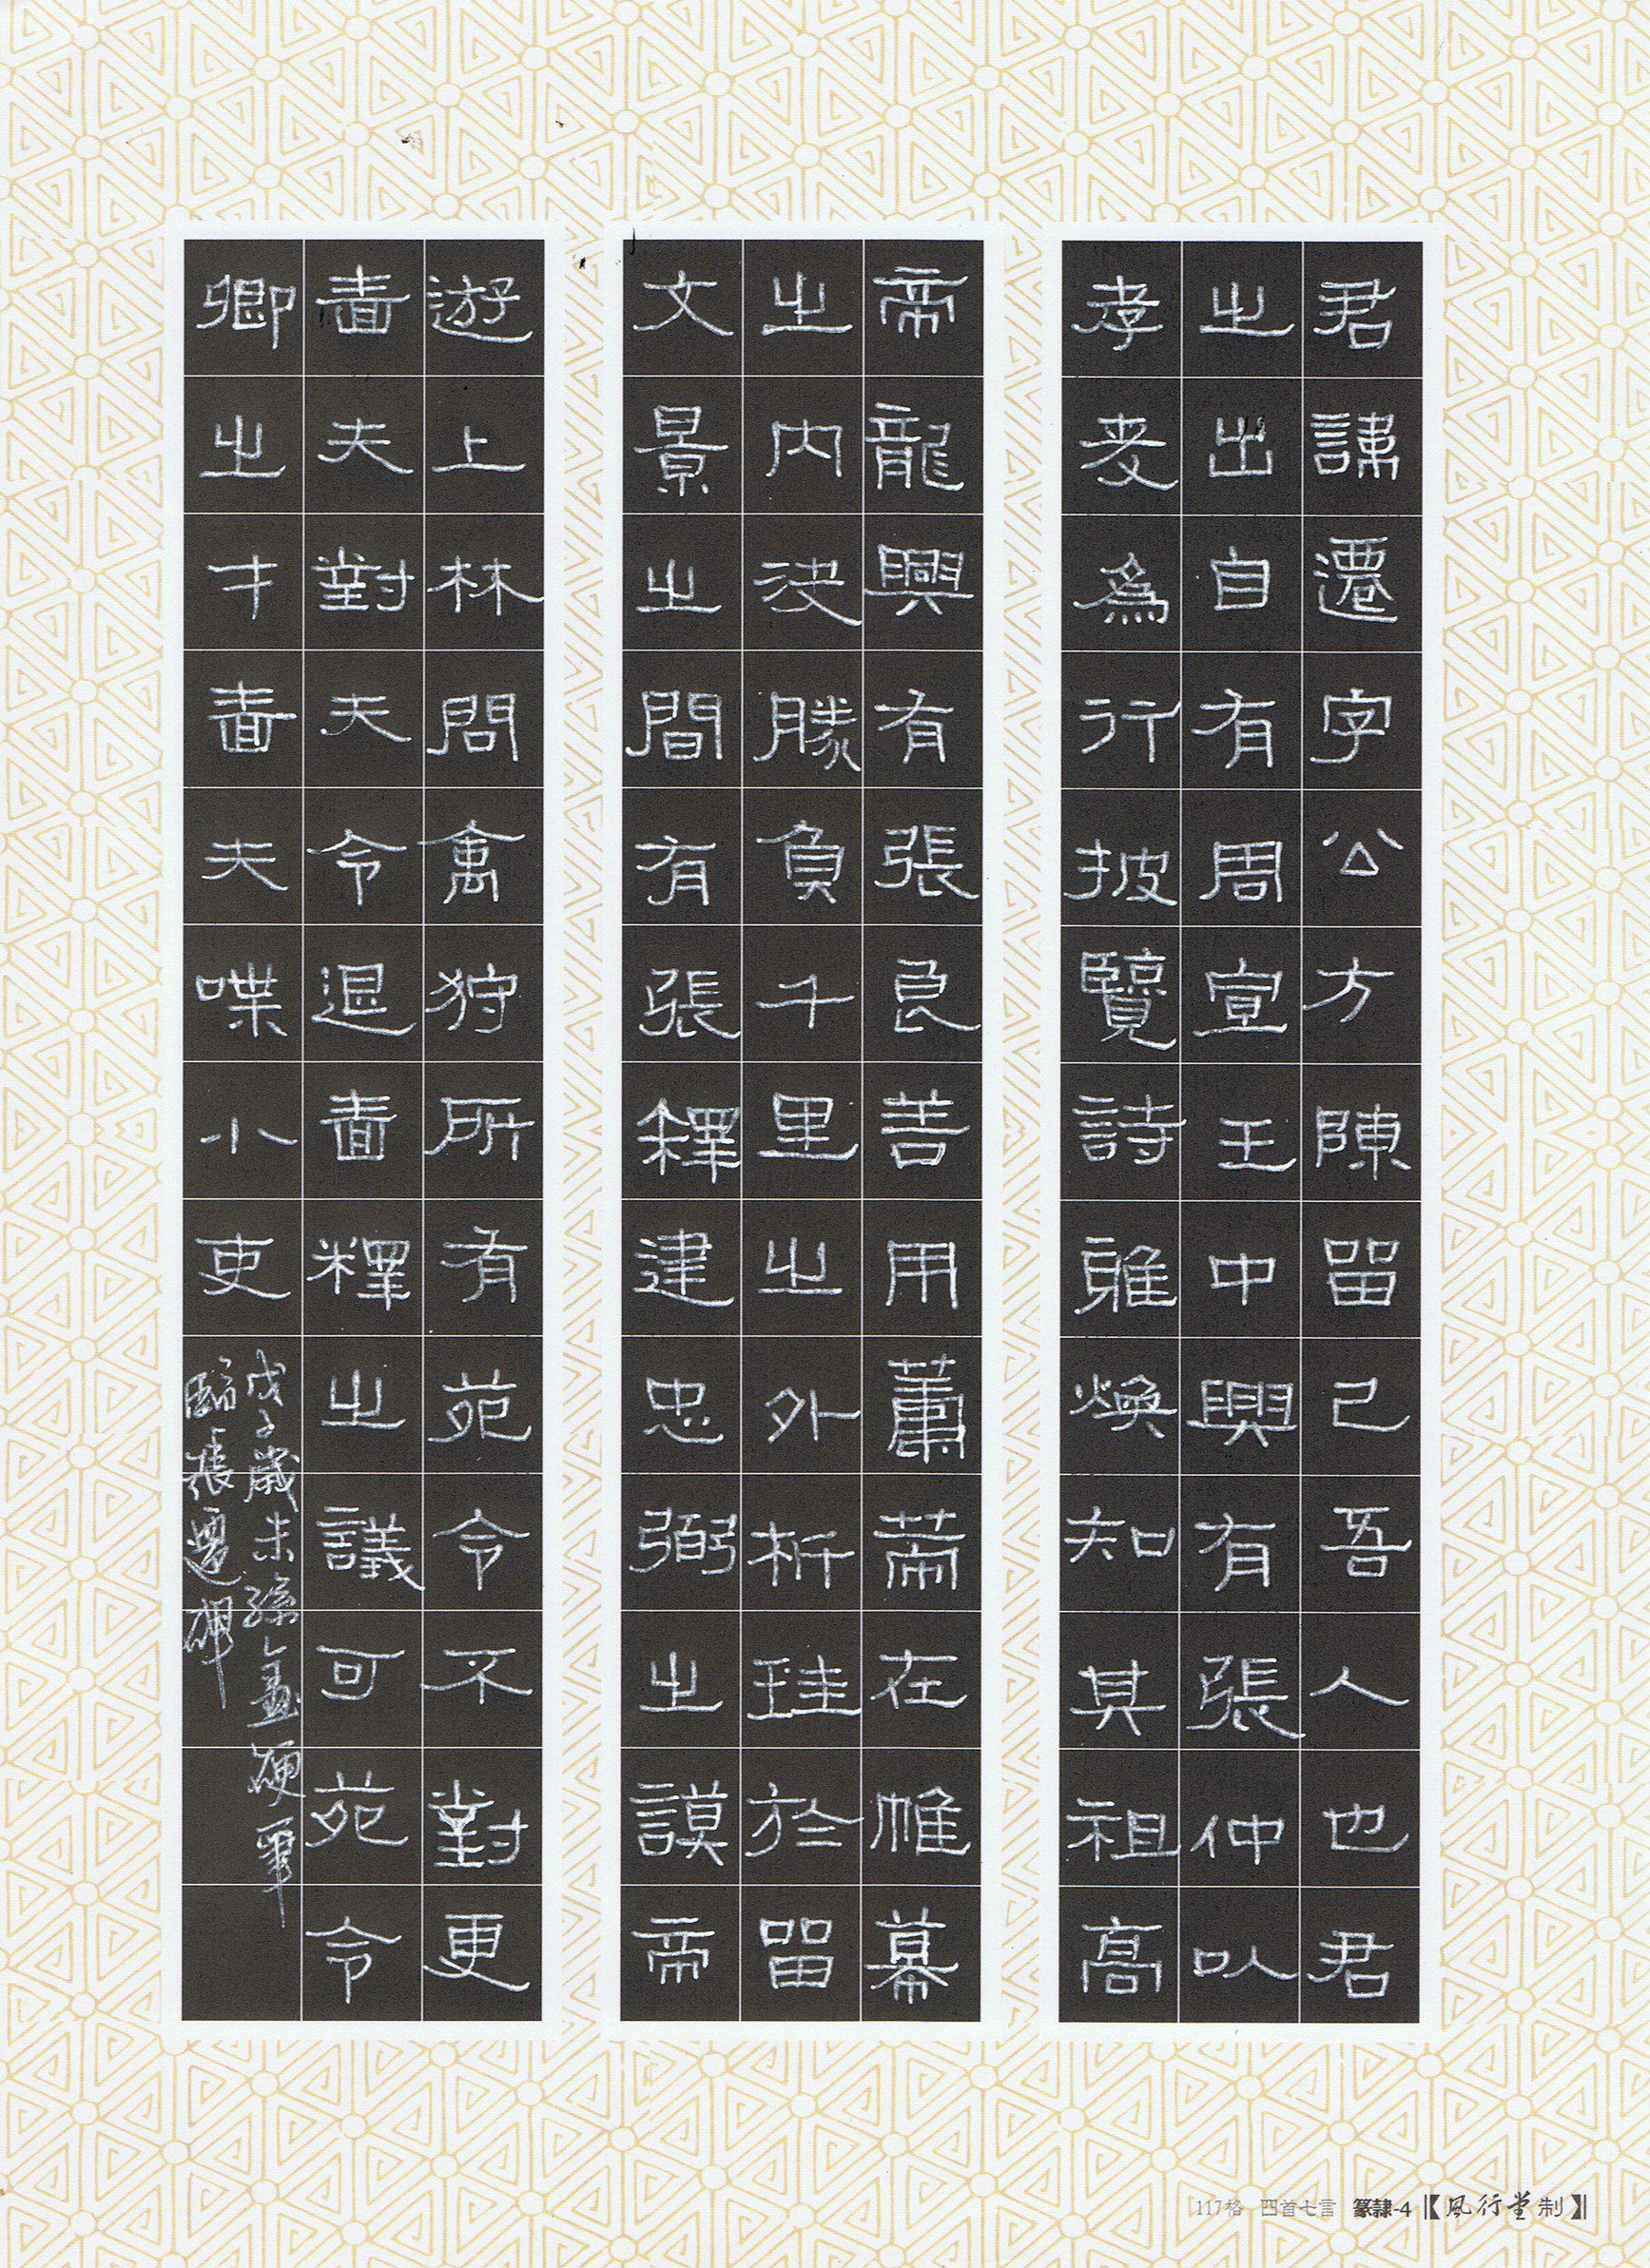 君諱遷字公方陳留己吾人也君
之出自有周宣王中興有張仲以
孝友為行披覽詩雅煥知其祖高
帝龍興有張良善用籌策在帷幕
之內決勝負千里之外析珪於留
文景之間有張釋建忠弼之謨帝
遊上林問禽狩所有苑令不對更
嗇夫對夫令退嗇釋之議可苑令
卿之才嗇夫喋小吏
戊子歲末孫硬筆
臨張遷碑
117格 四首七言 篆隸-4【風行堂制】